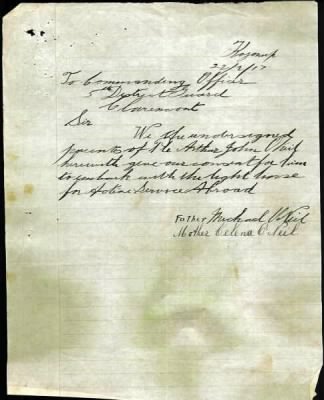 Kojonup
22/2/17
To Commanding Officer
5th District Guard
Claremont
Sir
We the undersigned
parents of Pte Arthur John O'Neil
herewith give our consent for him
to embark with the light horse
for Active Service Abroad
Father Michael O'Neil
Mother Celena O'Neil